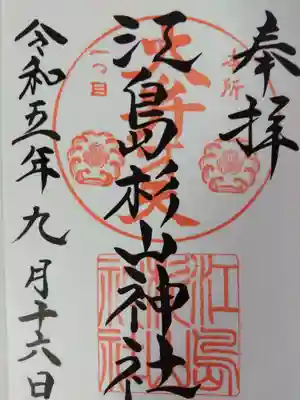 奉拝
本所
一つ目
江島杉山神社
江島杉山神社
令和五年九月十六日